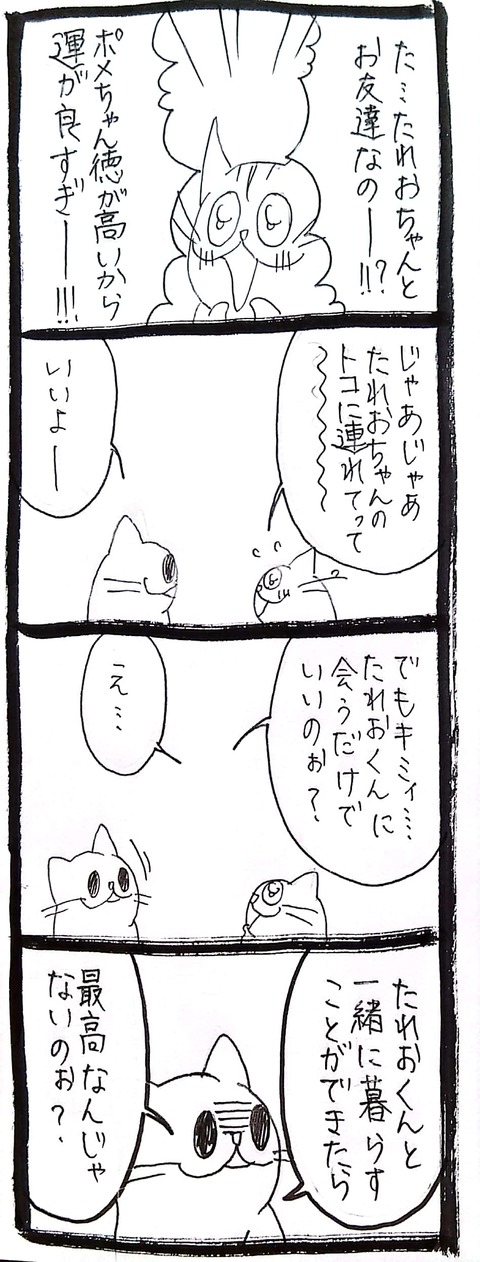 た…たれおちゃんと
お友達なのー!!?
ポメちゃん徳が高いから
運が良すぎー!!!
じゃあじゃあ
たれおちゃんの
トコに連れてって
〜〜〜〜
いいよー
でもキミィ……
たれおくんに
会うだけで
いいのぉ？
え…
たれおくんと
一緒に暮らす
ことができたら
最高なんじゃ
ないのぉ？